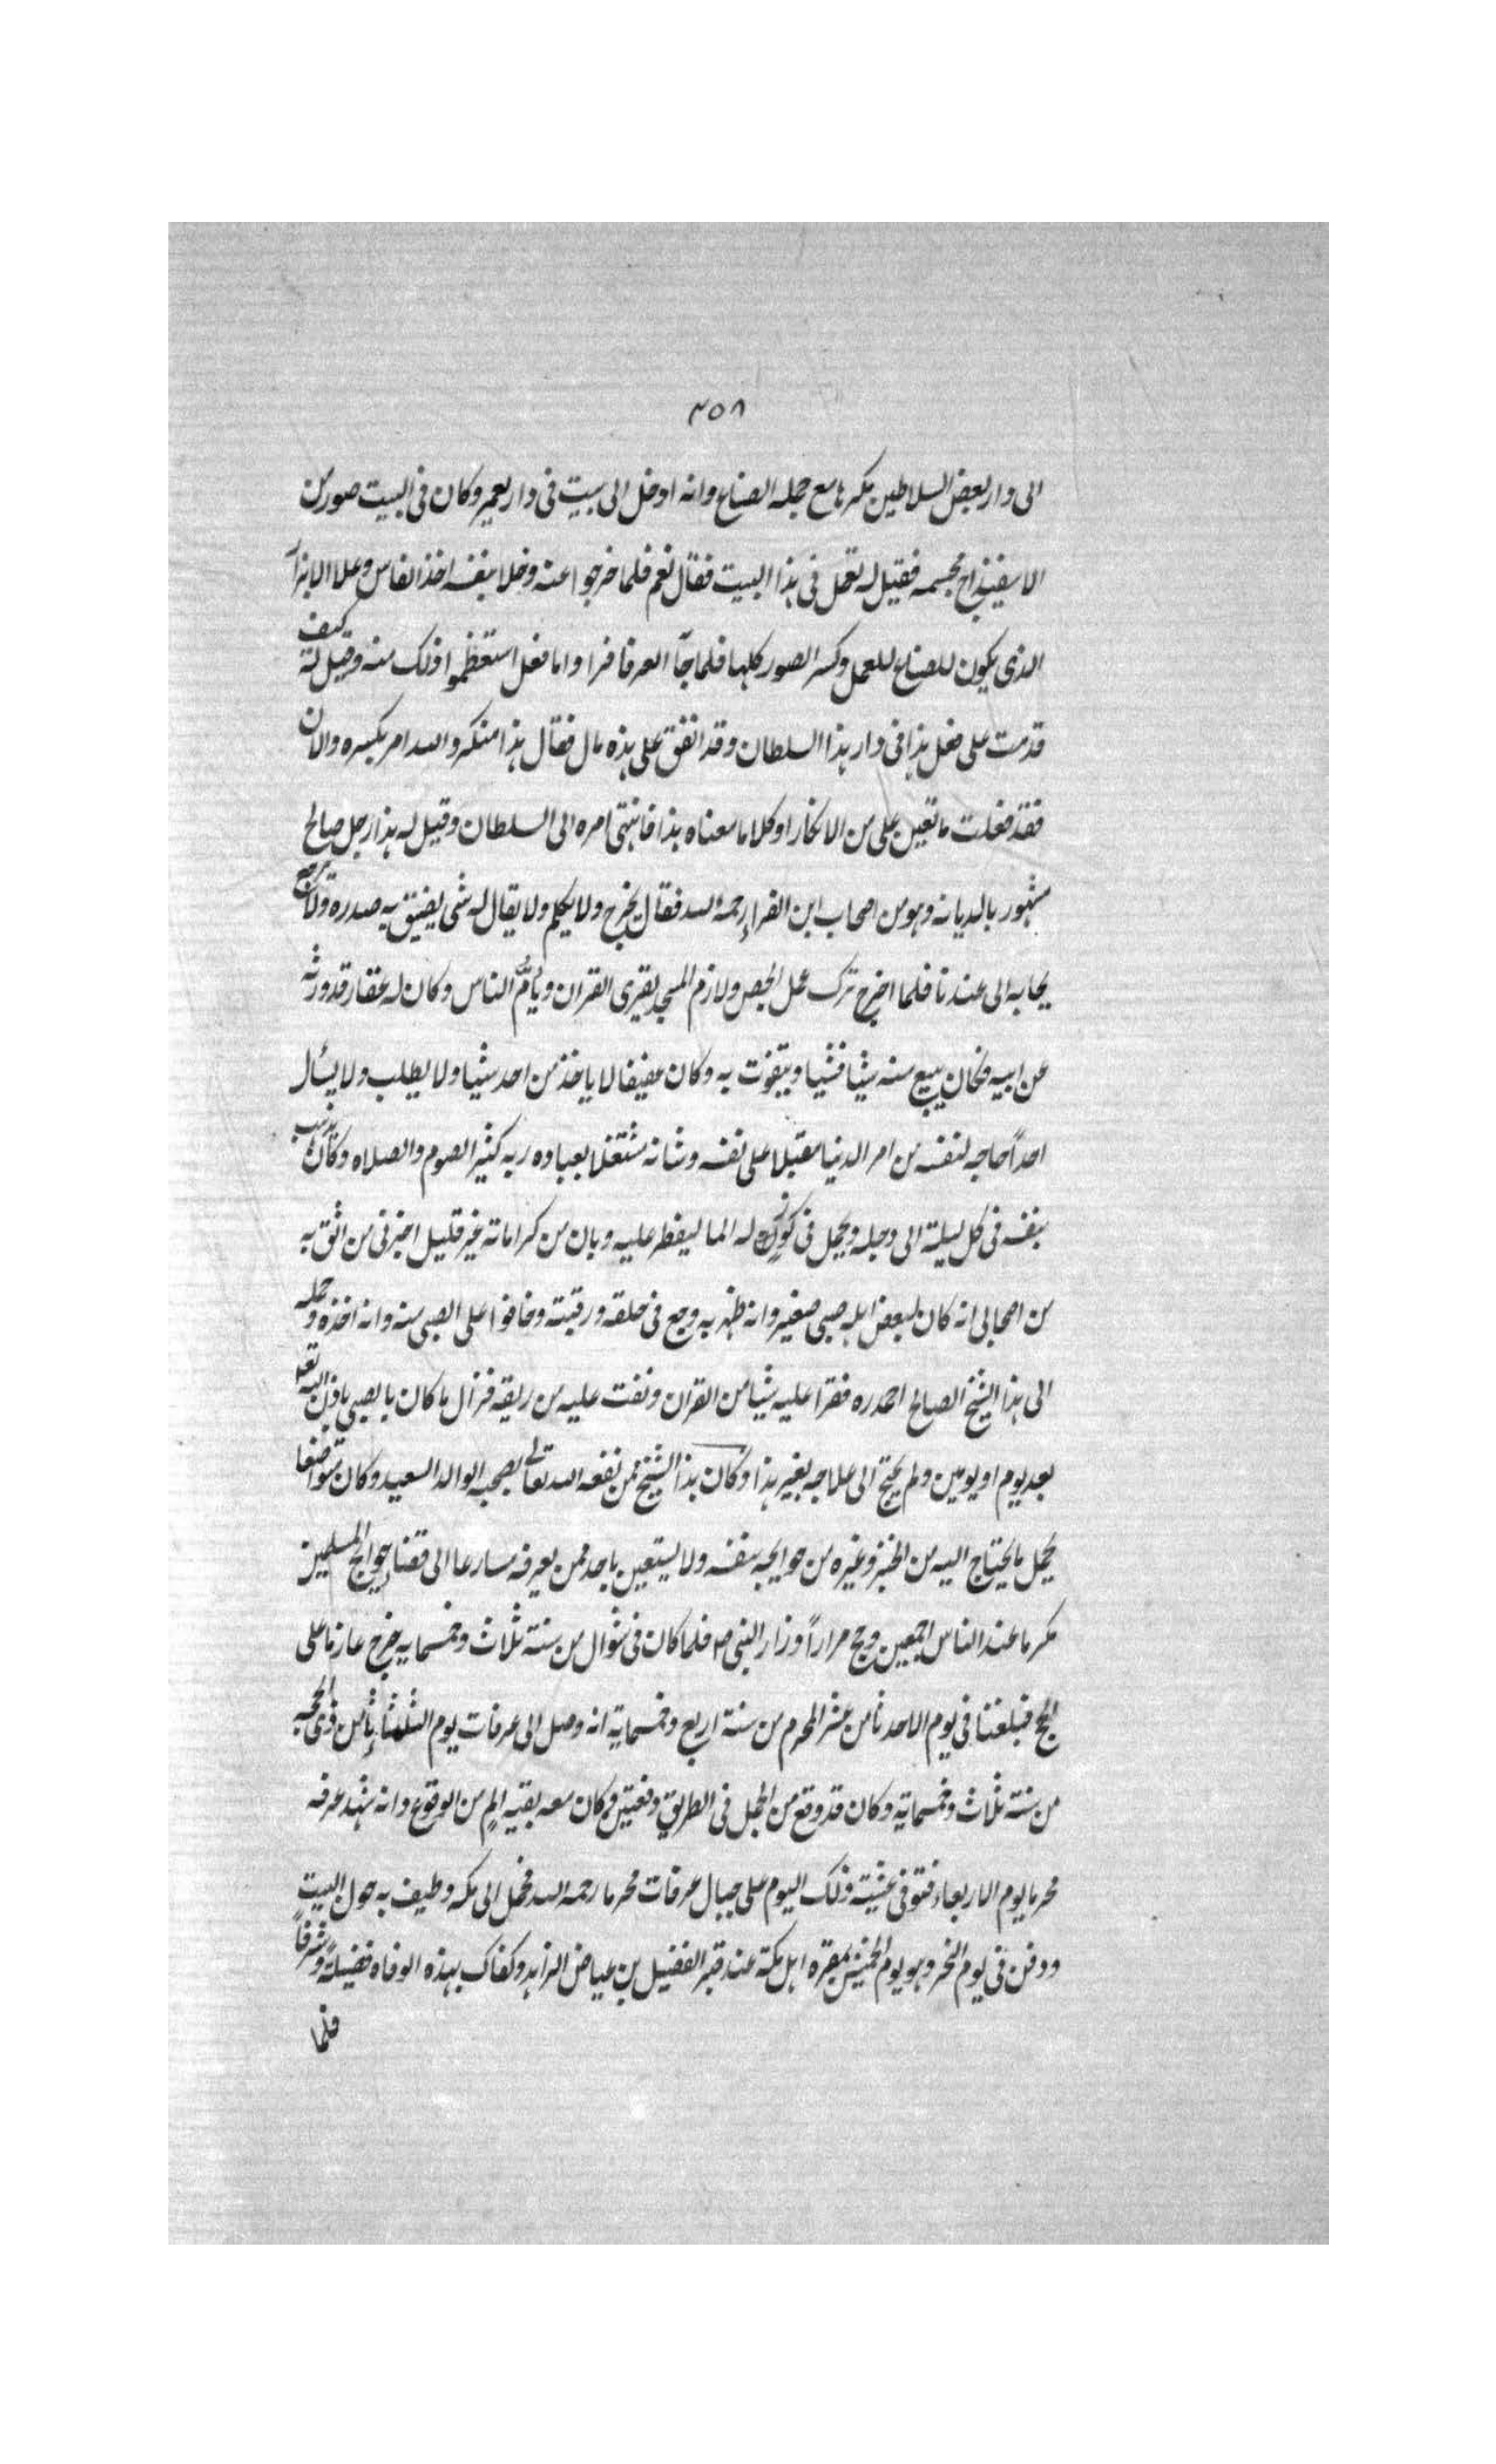 ٣٥٨
الى دار بعض السلاطين مكرها مع جمله الصناع وانه ادخل الى بيت فى دار يعمر وكان فى البيت صور من
الاسفيذاج مجسمه فقيل له تعمل فى هذا البيت فقال نعم فلما خرجوا عنه وخلا بنفسه اخذ الفاس وعلا
الذى يكون للصناع للعمل وكسر الصور كلها فلما جآ العرفا فراوا ما فعل استعظموا ذلك منه وقيل له كيف
قدمت على فعل هذا فى دار هذا السلطان وقد انفق على هذه مال فقال هذا منكر والله امر بكسره والان
فقد فعلت ما تعين على من الانكار او كلاما معناه هذا فانتهى امره الى السلطان وقيل له هذا رجل صالح
مشهور بالديانه وهو من اصحاب ابن الفراء رحمه الله فقال يخرج ولا يكلم ولا يقال له شى يضيق به صدره ولا
يجا به الى عندنا فلما اخرج ترك عمل الجص ولازم المسجد يقرى القران ويأمّ الناس وكان له عقار قد ورثه
عن ابيه فكان يبيع منه شيا فشيا ويتقوت به وكان عفيفا لا ياخذ من احد شيا ولا يطلب ولا يسأل
احداً حاجه لنفسه من امر الدنيا مقبلا على نفسه وشانه مشتغلا بعباده ربه كثير الصوم والصلاه وكان يذهب
بنفسه فى كل ليلة الى دجله ويحمل فى كوز له الما ليفطر عليه وبان من كراماته غير قليل اخبرنى من اثق به
من اصحابى انه كان لبعض اهله صبى صغير وانه ظهر به وجع فى حلقه ورقبته وخافوا على الصبى منه وانه اخذه وحمله
الى هذا الشيخ الصالح احمد ره فقرا عليه شيا من القران ونفث عليه من ريقه فزال ما كان بالصبى باذن الله تعه
بعد يوم او يومين ولم يحتج الى علاجه بغير هذا وكان هذا الشيخ ممن نفعه الله تعالى بصحبه الوالد السعيد وكان متواضعا
يحمل ما يحتاج اليه من الخبز وغيره من حوايجه بنفسه ولا يستعين باحد ممن يعرفه مسارعا الى قضاء حوايج المسلمين
مكرما عند الناس اجمعين وحج مراراً وزار النبى ص فلما كان فى شوال من سنة ثلاث وخمسمايه خرج عازما على
الحج فبلغنا فى يوم الاحد ثامن عشر المحرم من سنة اربع وخمسماية انه وصل الى عرفات يوم الثلثاء ثامن ذى الحجه
من سنة ثلاث وخمسماية وكان قد وقع من الجمل فى الطريق دفعتين وكان معه بقيه الم من الوقوع وانه شهد عرفه
محرما يوم الاربعاء فتوفى عشية ذلك اليوم على جبال عرفات محرما رحمه الله فحمل الى مكه وطيف به حول البيت
ودفن فى يوم النحر وهو يوم الخميس بمقبره اهل مكة عند قبر الفضيل بن عياض الزاهد وكفاك بهذه الوفاه فضيلةً وشرفاً
فلما